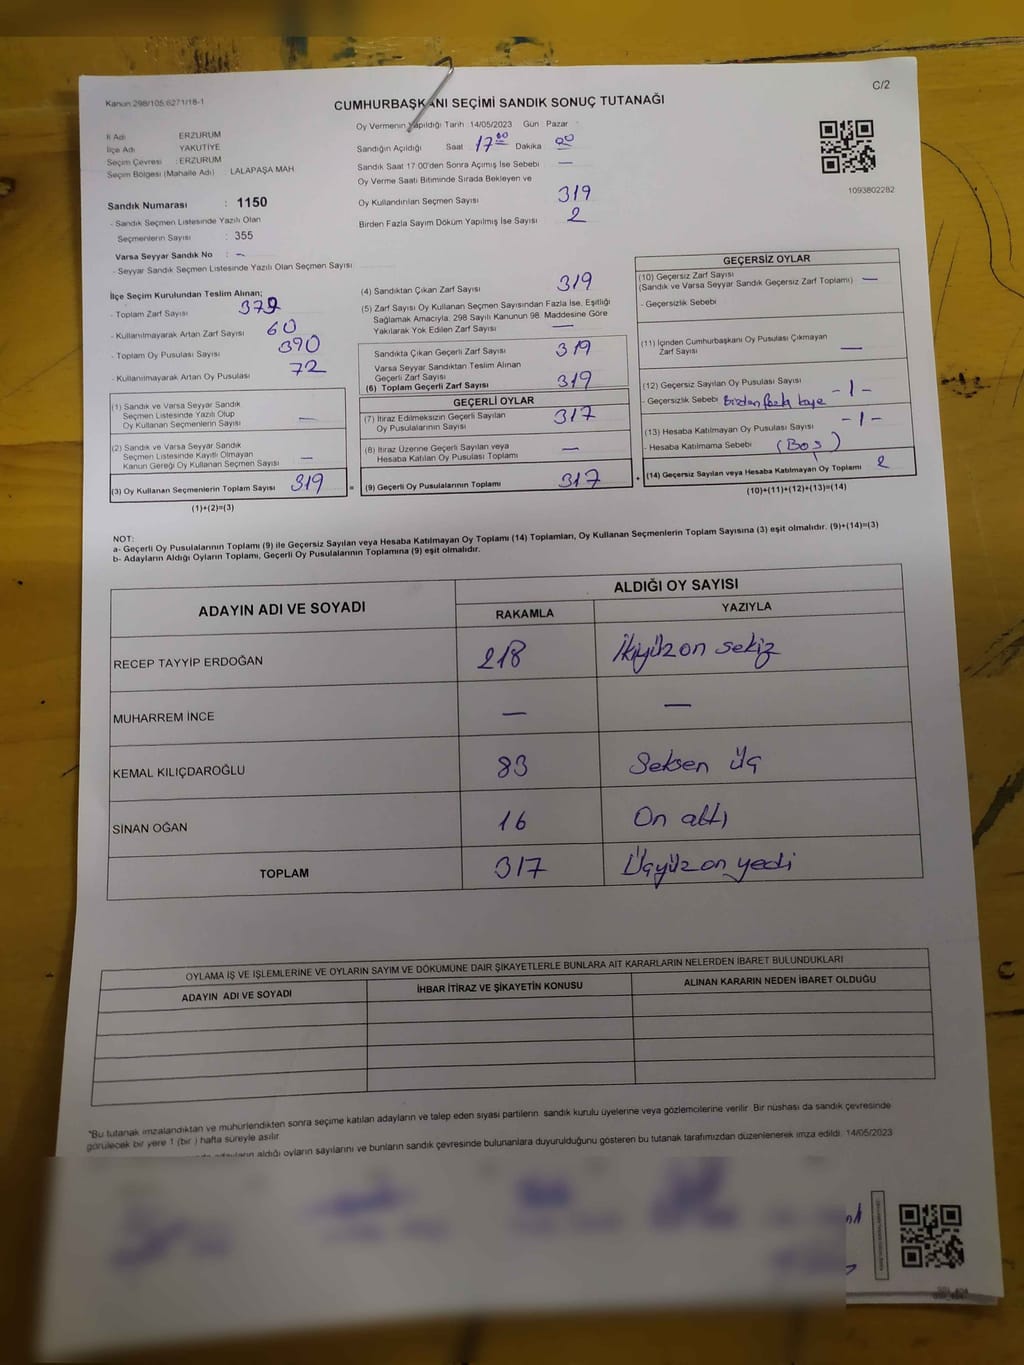 Kanun 298/105;6271/18-1
C/2
CUMHURBAŞKANI SEÇİMİ SANDIK SONUÇ TUTANAĞI
İl Adı : ERZURUM
İlçe Adı : YAKUTİYE
Seçim Çevresi : ERZURUM
Seçim Bölgesi (Mahalle Adı) : LALAPAŞA MAH
Sandık Numarası : 1150
- Sandık Seçmen Listesinde Yazılı Olan
Seçmenlerin Sayısı : 355
Varsa Seyyar Sandık No : -
- Seyyar Sandık Seçmen Listesinde Yazılı Olan Seçmen Sayısı
Oy Vermenin Yapıldığı Tarih 14/05/2023 Gün Pazar
Sandığın Açıldığı Saat 17 00 Dakika 00
Sandık Saat 17:00'den Sonra Açımış İse Sebebi —
Oy Verme Saati Bitiminde Sırada Bekleyen ve
Oy Kullandırılan Seçmen Sayısı 319
Birden Fazla Sayım Döküm Yapılmış İse Sayısı 2
1093802282
İlçe Seçim Kurulundan Teslim Alınan;
- Toplam Zarf Sayısı
- Kullanılmayarak Artan Zarf Sayısı 60
- Toplam Oy Pusulası Sayısı 390
- Kullanılmayarak Artan Oy Pusulası 72
(1) Sandık ve Varsa Seyyar Sandık
Seçmen Listesinde Yazılı Olup
Oy Kullanan Seçmenlerin Sayısı —
(2) Sandık ve Varsa Seyyar Sandık
Seçmen Listesinde Kayıtlı Olmayan
Kanun Gereği Oy Kullanan Seçmen Sayısı —
(3) Oy Kullanan Seçmenlerin Toplam Sayısı 319
(1)+(2)=(3)
(4) Sandıktan Çıkan Zarf Sayısı 319
(5) Zarf Sayısı Oy Kullanan Seçmen Sayısından Fazla İse, Eşitliği
Sağlamak Amacıyla, 298 Sayılı Kanunun 98. Maddesine Göre
Yakılarak Yok Edilen Zarf Sayısı —
Sandıkta Çıkan Geçerli Zarf Sayısı 319
Varsa Seyyar Sandıktan Teslim Alınan
Geçerli Zarf Sayısı
(6) Toplam Geçerli Zarf Sayısı 319
GEÇERLİ OYLAR
(7) İtiraz Edilmeksizin Geçerli Sayılan
Oy Pusulalarının Sayısı 317
(8) İtiraz Üzerine Geçerli Sayılan veya
Hesaba Katılan Oy Pusulası Toplamı —
= (9) Geçerli Oy Pusulalarının Toplamı 317 +
GEÇERSİZ OYLAR
(10) Geçersiz Zarf Sayısı
(Sandık ve Varsa Seyyar Sandık Geçersiz Zarf Toplamı) —
- Geçersizlik Sebebi
(11) İçinden Cumhurbaşkanı Oy Pusulası Çıkmayan
Zarf Sayısı —
(12) Geçersiz Sayılan Oy Pusulası Sayısı -1-
- Geçersizlik Sebebi Birden fazla
(13) Hesaba Katılmayan Oy Pusulası Sayısı -1-
- Hesaba Katılmama Sebebi (Boş)
(14) Geçersiz Sayılan veya Hesaba Katılmayan Oy Toplamı 2
(10)+(11)+(12)+(13)=(14)
NOT:
a- Geçerli Oy Pusulalarının Toplamı (9) ile Geçersiz Sayılan veya Hesaba Katılmayan Oy Toplamı (14) Toplamları, Oy Kullanan Seçmenlerin Toplam Sayısına (3) eşit olmalıdır. (9)+(14)=(3)
b- Adayların Aldığı Oyların Toplamı, Geçerli Oy Pusulalarının Toplamına (9) eşit olmalıdır.
ADAYIN ADI VE SOYADI ALDIĞI OY SAYISI
RAKAMLA YAZIYLA
RECEP TAYYİP ERDOĞAN 218 İkiyüz on sekiz
MUHARREM İNCE — —
KEMAL KILIÇDAROĞLU 83 Seksen üç
SİNAN OĞAN 16 On altı
TOPLAM 317 Üçyüz on yedi
OYLAMA İŞ VE İŞLEMLERİNE VE OYLARIN SAYIM VE DÖKÜMÜNE DAİR ŞİKAYETLERLE BUNLARA AİT KARARLARIN NELERDEN İBARET BULUNDUKLARI
ADAYIN ADI VE SOYADI İHBAR İTİRAZ VE ŞİKAYETİN KONUSU ALINAN KARARIN NEDEN İBARET OLDUĞU
*Bu tutanak imzalandıktan ve mühürlendikten sonra seçime katılan adayların ve talep eden siyasi partilerin sandık kurulu üyelerine veya gözlemcilerine verilir. Bir nüshası da sandık çevresinde
görülecek bir yere 1 (bir ) hafta süreyle asılır.
adayların aldığı oyların sayılarını ve bunların sandık çevresinde bulunanlara duyurulduğunu gösteren bu tutanak tarafımızdan düzenlenerek imza edildi. 14/05/2023